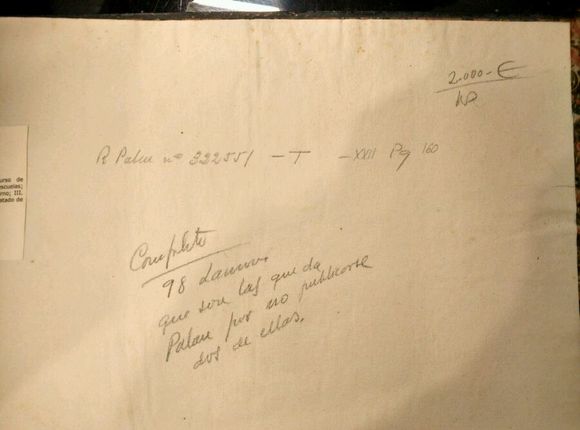 2.000-€
R Palau nº 332551 - T - XXII Pg 160
urso de
escuelas;
rno; III.
atado de
Completo
98 láminas
que son las que da
Palau por no publicarse
dos de ellas.